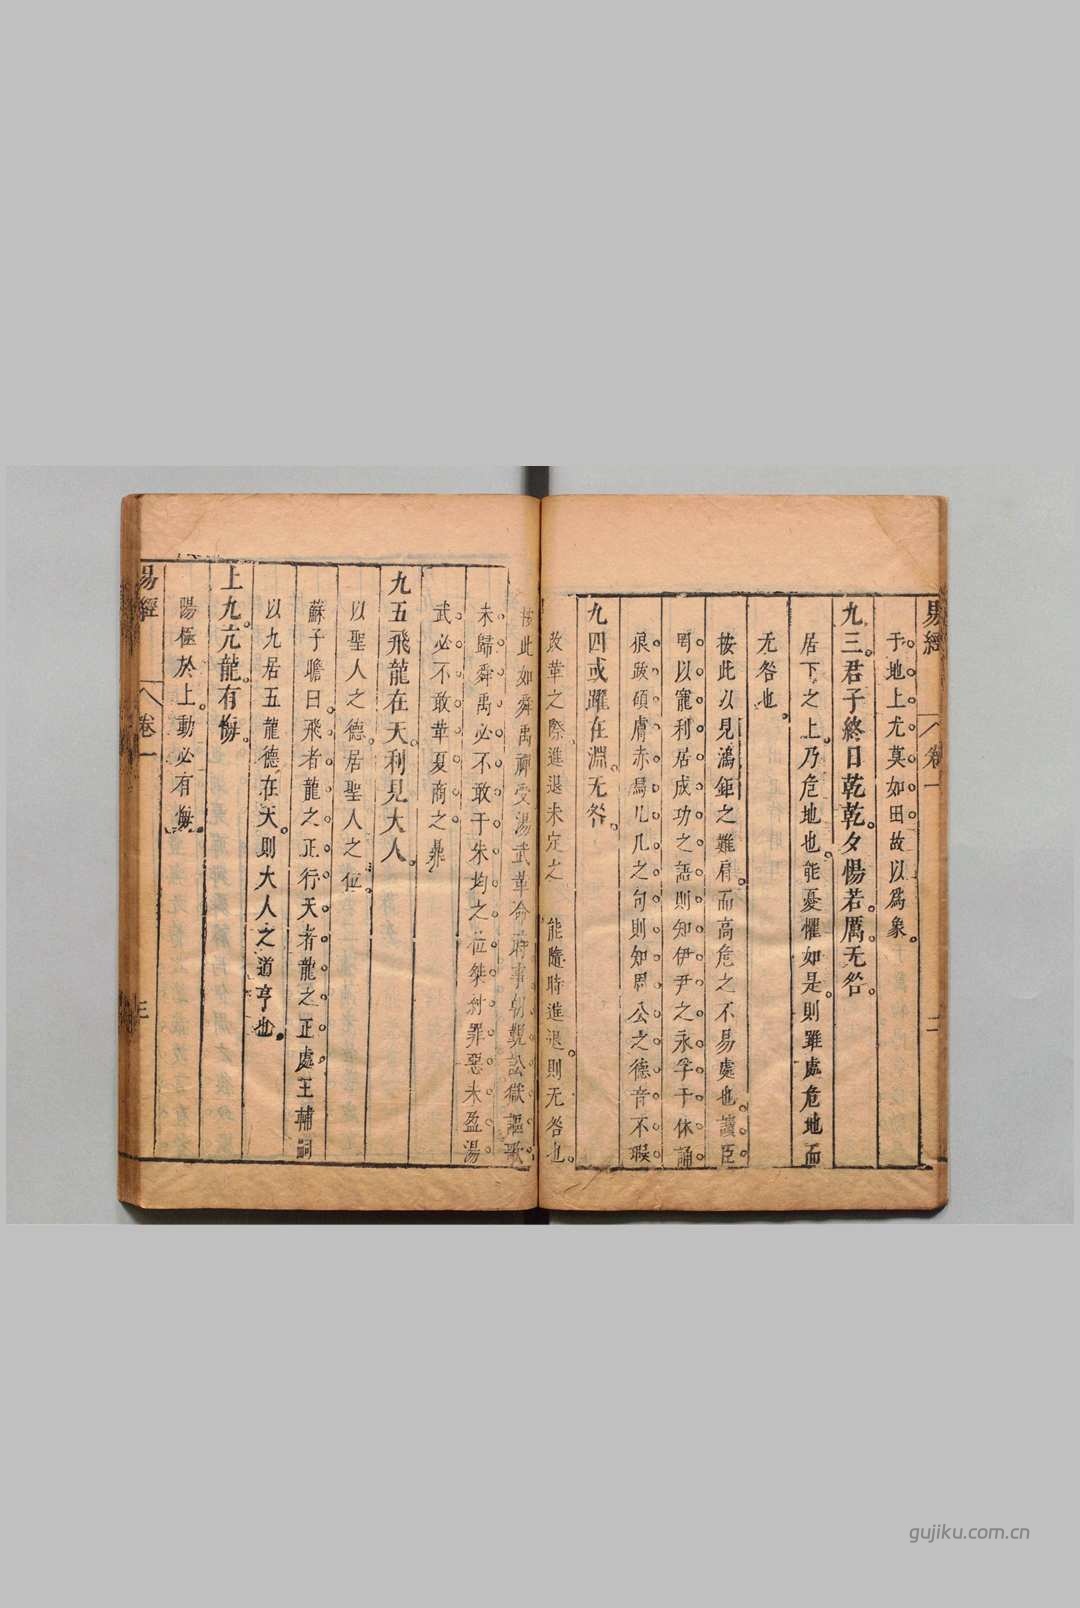 易經
卷一
二
于地上尤莫如田故以爲象
九三君子終日乾乾夕惕若厲无咎
居下之上乃危地也能憂懼如是則雖處危地而
无咎也
按此以見鴻鉅之難肩而高危之不易處也讀臣
罔以寵利居成功之語則知伊尹之永孚于休誦
狼跋碩膚赤舄几几之句則知周公之德音不瑕
九四或躍在淵无咎
改革之際進退未定之 能隨時進退則无咎也
按此如舜禹禪受湯武革命時事朝覲訟獄謳歌
未歸舜禹必不敢于朱均之位桀紂罪惡未盈湯
武必不敢革夏商之鼎
九五飛龍在天利見大人
以聖人之德居聖人之位
蘇子瞻曰飛者龍之正行天者龍之正處王輔嗣
以九居五龍德在天則大人之道亨也
上九亢龍有悔
陽極於上動必有悔
易經
卷一
三
gujiku.com.cn